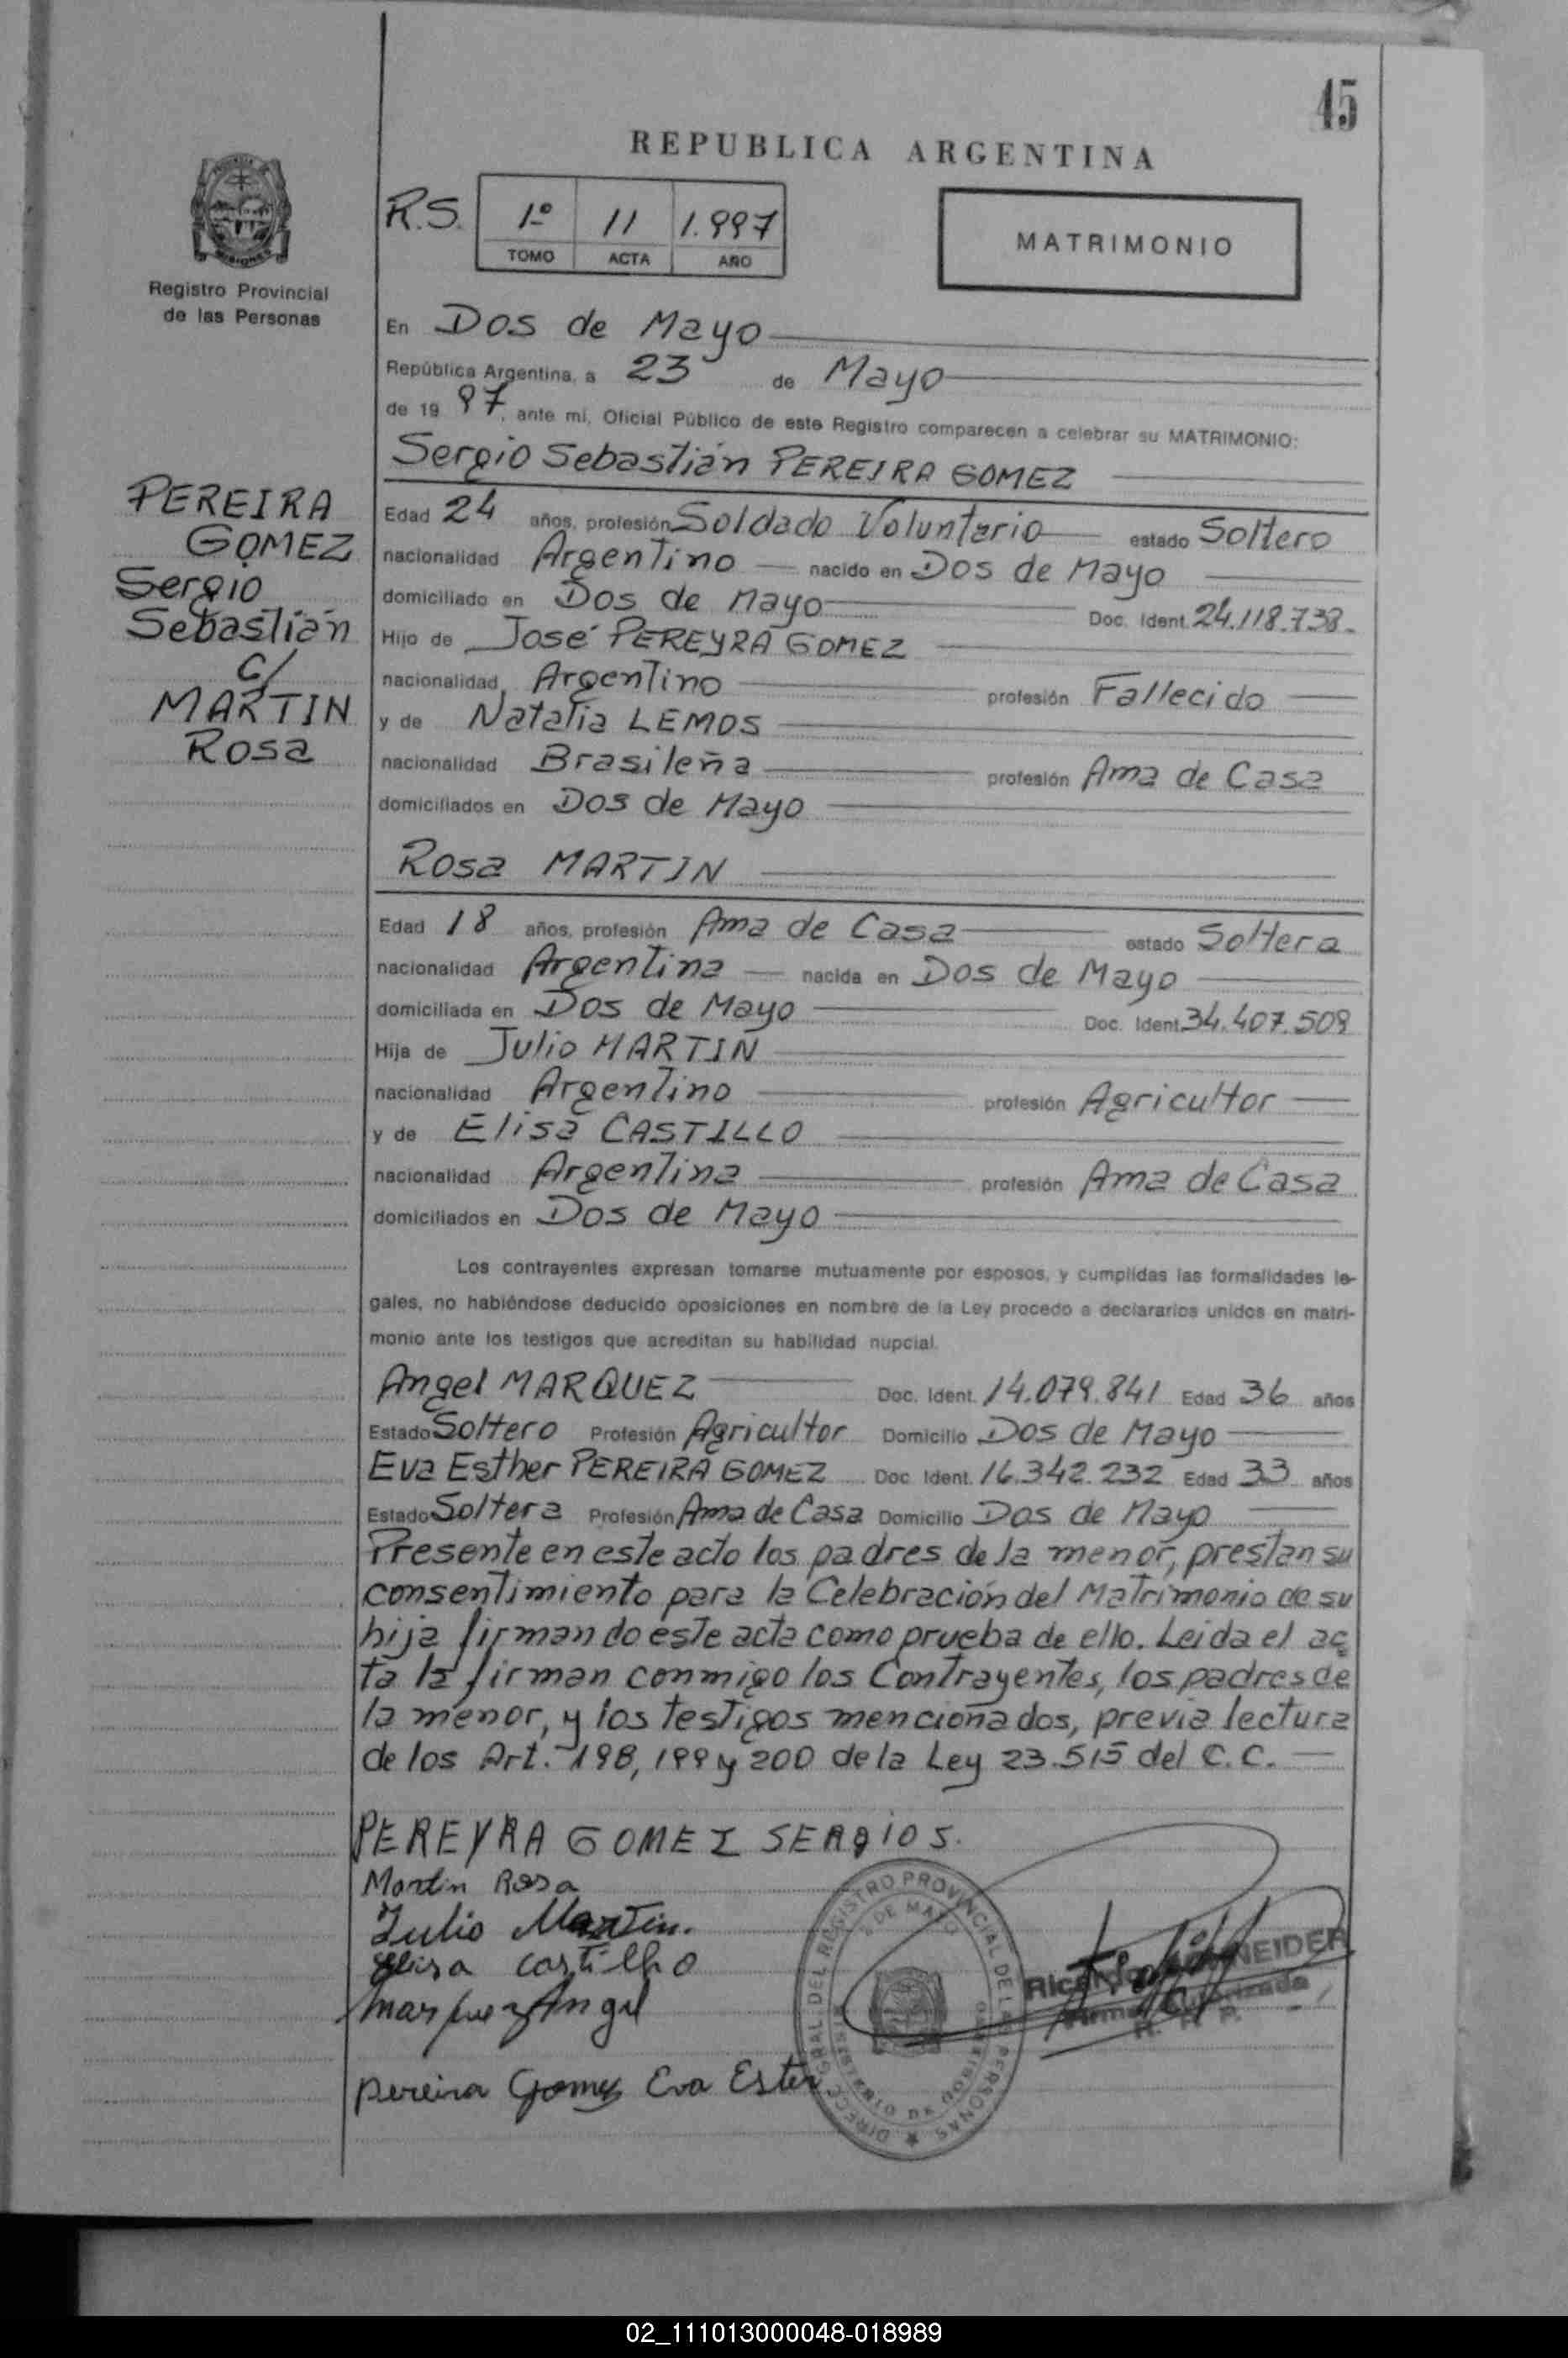 45
REPUBLICA ARGENTINA
R.S. 1º 11 1.997
TOMO ACTA AÑO
MATRIMONIO
Registro Provincial
de las Personas
PEREIRA
GOMEZ
Sergio
Sebastián
c/
MARTIN
Rosa
En Dos de Mayo
República Argentina, a 23 de Mayo
de 19 97, ante mi, Oficial Público de este Registro comparecen a celebrar su MATRIMONIO:
Sergio Sebastián PEREIRA GOMEZ
Edad 24 años, profesión Soldado Voluntario estado Soltero
nacionalidad Argentino nacido en Dos de Mayo
domiciliado en Dos de Mayo Doc. Ident. 24.118.738.
Hijo de José PEREYRA GOMEZ
nacionalidad Argentino profesión Fallecido
y de Natalia LEMOS
nacionalidad Brasileña profesión Ama de Casa
domiciliados en Dos de Mayo
Rosa MARTIN
Edad 18 años, profesión Ama de Casa estado Soltera
nacionalidad Argentina nacida en Dos de Mayo
domiciliada en Dos de Mayo Doc. Ident. 34.407.509
Hija de Julio MARTIN
nacionalidad Argentino profesión Agricultor
y de Elisa CASTILLO
nacionalidad Argentina profesión Ama de Casa
domiciliados en Dos de Mayo
Los contrayentes expresan tomarse mutuamente por esposos, y cumplidas las formalidades le-
gales, no habiéndose deducido oposiciones en nombre de la Ley procedo a declararlos unidos en matri-
monio ante los testigos que acreditan su habilidad nupcial.
Angel MARQUEZ Doc. Ident. 14.079.841 Edad 36 años
Estado Soltero Profesión Agricultor Domicilio Dos de Mayo
Eva Esther PEREIRA GOMEZ Doc. Ident. 16.342.232 Edad 33 años
Estado Soltera Profesión Ama de Casa Domicilio Dos de Mayo
Presente en este acto los padres de la menor, prestan su
consentimiento para la Celebración del Matrimonio de su
hija firmando este acta como prueba de ello. Leida el ac
ta la firman conmigo los Contrayentes, los padres de
la menor, y los testigos mencionados, previa lectura
de los Art. 198, 199 y 200 de la Ley 23.515 del C.C.
PEREYRA GOMEZ SERGIO S.
Martin Rosa
Julio Martin.
Elisa castilho
Marquez Angel
pereira Gomez Eva Ester
DIRECC. GRAL. DEL REGISTRO PROVINCIAL DE LAS PERSONAS
2 DE MAYO
MINISTERIO DE GOBIERNO
Firma Autorizada
R. P. P.
02_111013000048-018989